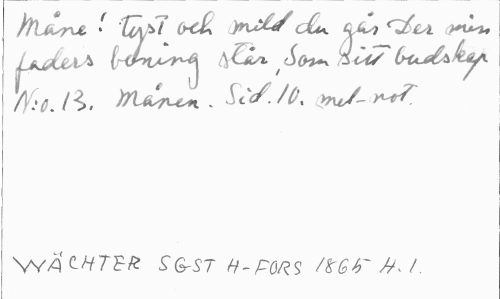 Måne! tyst och mild du går Der min
faders boning står, Som sitt budskap
N:o. 13. Månen. Sid. 10. mel-not.
WÄCHTER SGST H-FORS 1865 H.1.